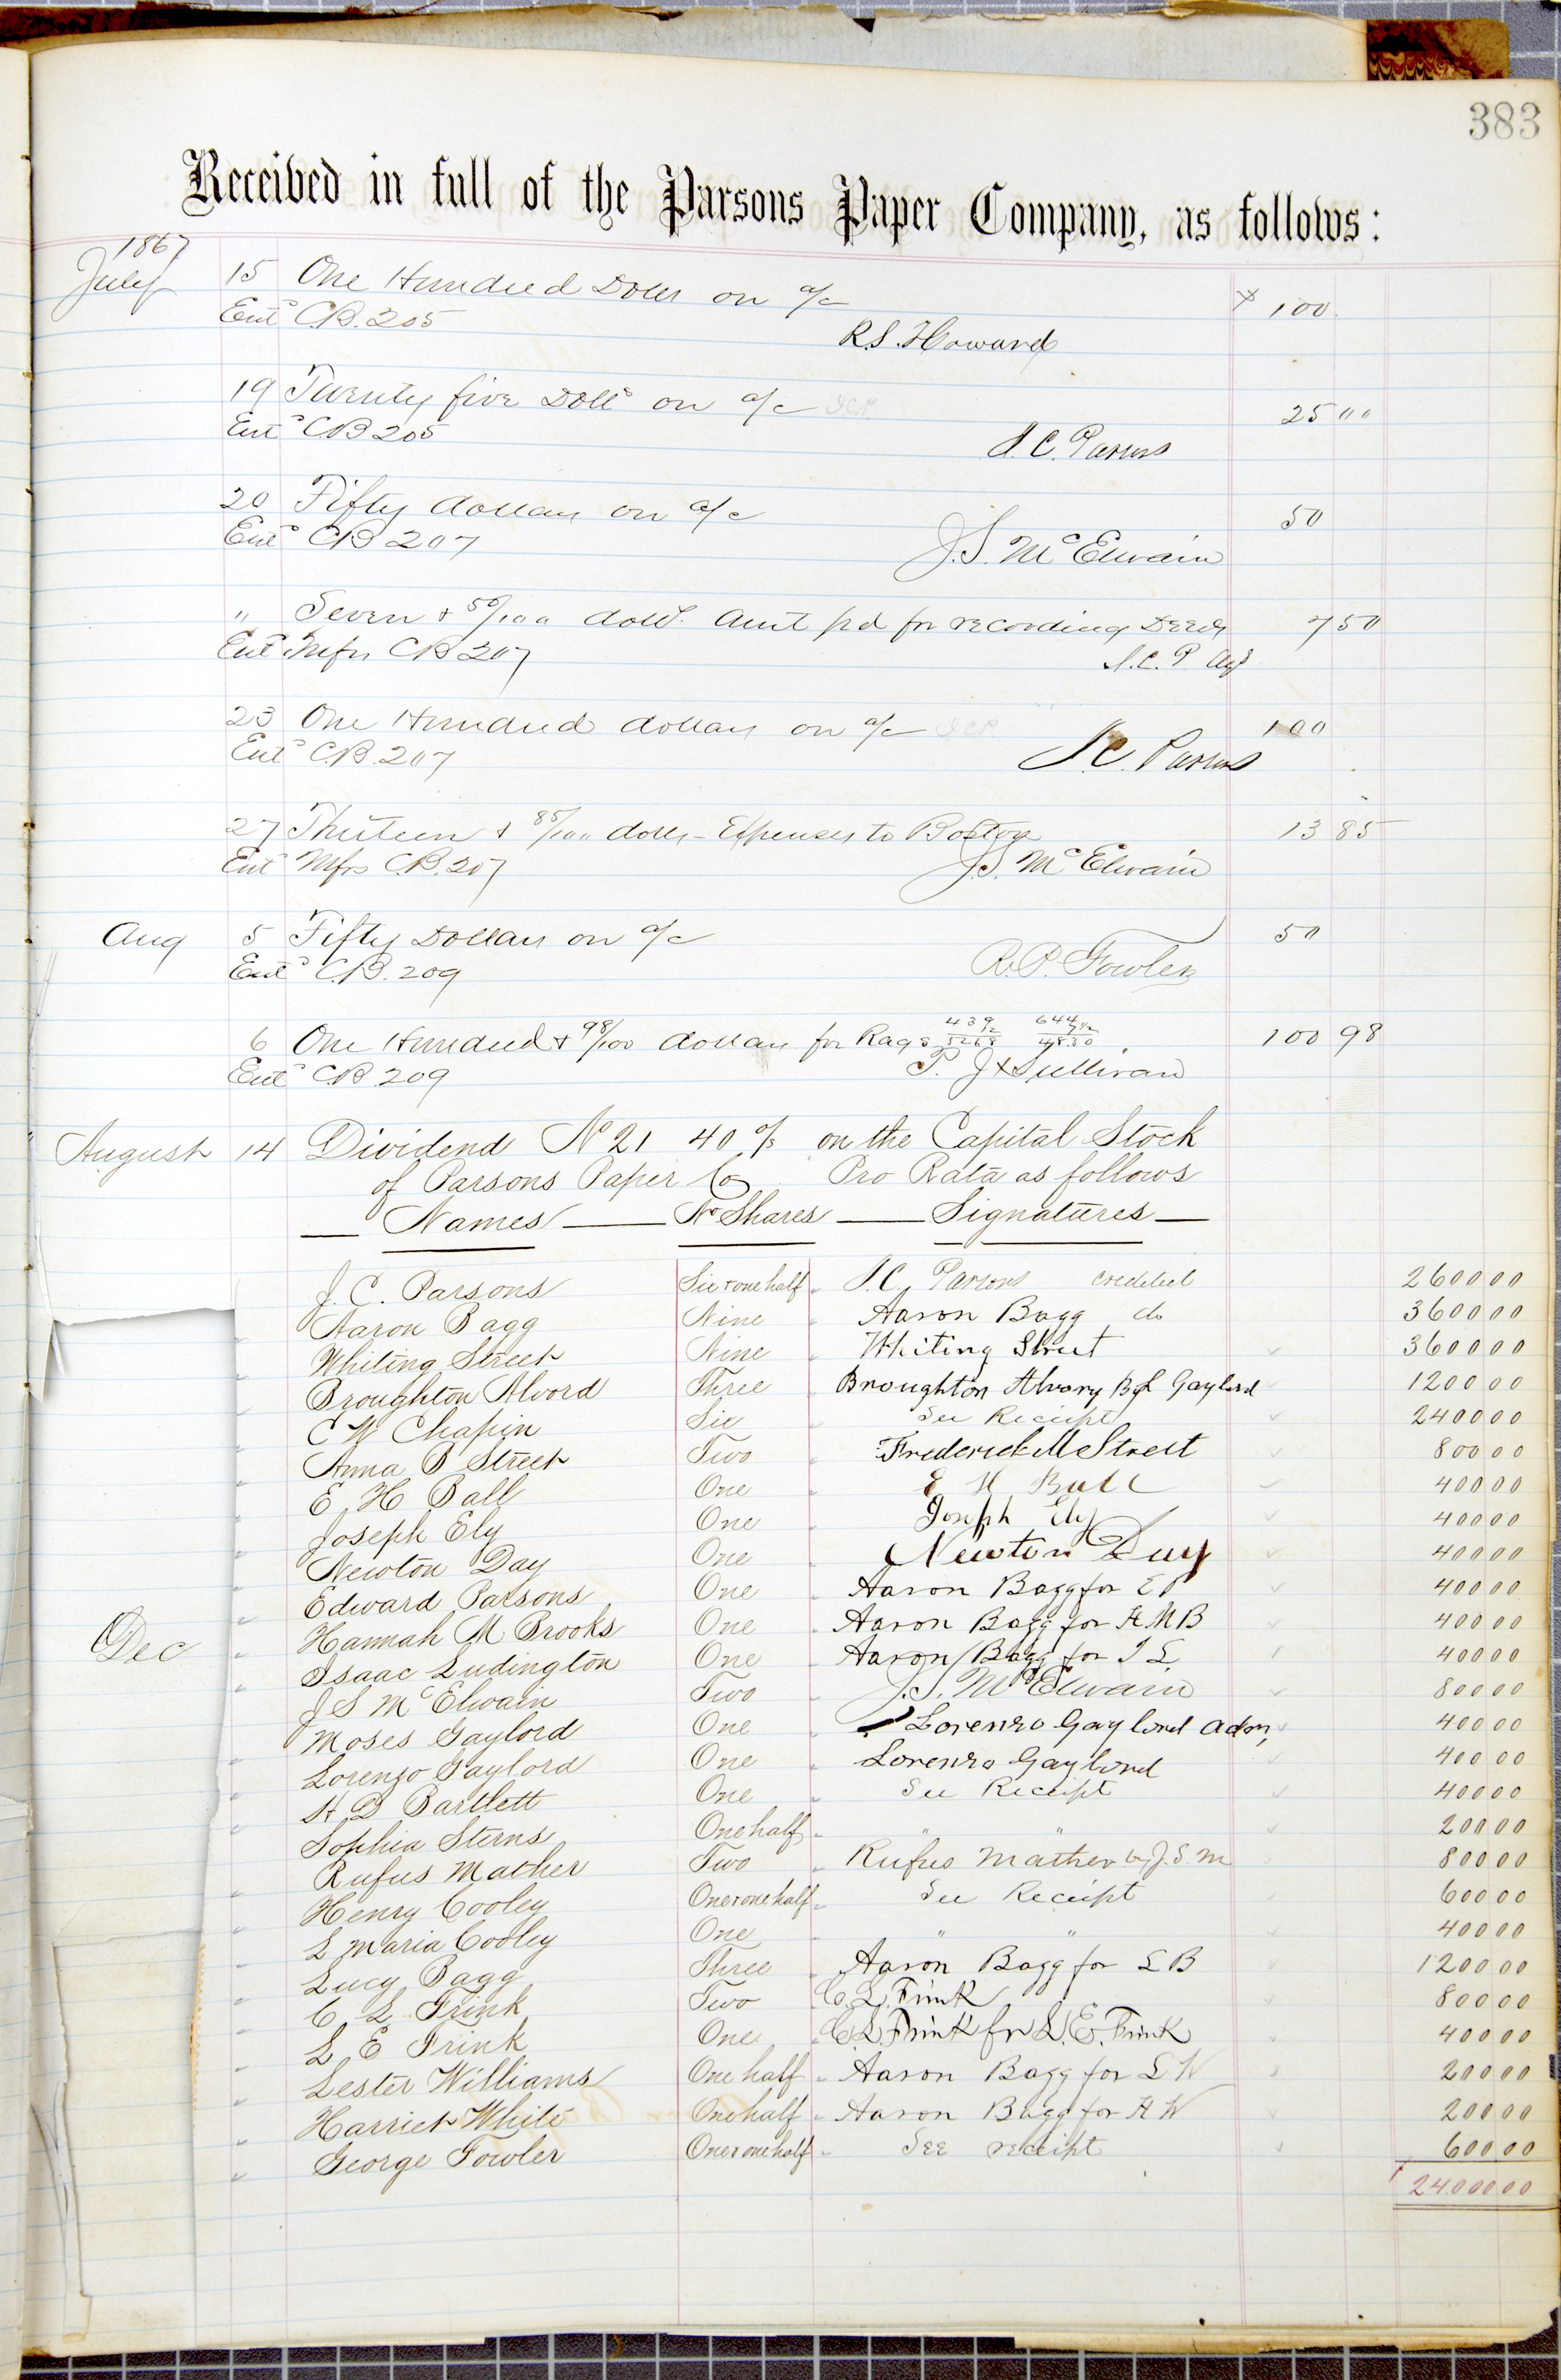 383
Received in full of the Parsons Paper Company, as follows:
1867
July 15 One Hundred Dolls on a/c × 100
Entd C.B. 205 R.S. Howard
19 Twenty five Dolls on a/c JCP 25 00
Entd CB 205 J. C. Parsons
20 Fifty dollars on a/c 50
Entd CB 207 J.S. McElwain
" Seven + 50/100 dolls. Amt pd for recording Deeds 7 50
Entd Mfrs CB 207 J.C.P. Agt
23 One Hundred dollars on a/c JCP 100
Entd C.B. 207 J.C. Parsons
27 Thirteen + 85/100 dolls - Expenses to Boston 13 85
Entd Mfrs C.B. 207 J.S. McElwain
Aug 5 Fifty Dollars on a/c 50
Entd C.B. 209 R.P. Fowler
6 One Hundred + 98/100 dollars for Rags 439 12 5268 644 7½ 48.30 100 98
Entd CB 209 P. J × Sullivan
August 14 Dividend No 21 40 % on the Capital Stock
of Parsons Paper Co Pro Rata as follows
Names No Shares Signatures
J. C. Parsons Six + one half J.C. Parsons credited 2600 00
Aaron Bagg Nine Aaron Bagg do 3600 00
Whiting Street Nine Whiting Street 3600 00
Broughton Alvord Three Broughton Alvord By L Gaylord 1200 00
C W Chapin Six See Receipt 2400 00
Anna B Street Two Frederick M Street 800 00
E. H Ball One E H Ball 400 00
Joseph Ely One Joseph Ely 400 00
Newton Day One Newton Day 400 00
Edward Parsons One Aaron Bagg for E P 400 00
Hannah M Brooks One Aaron Bagg for H.M.B 400 00
Dec
Isaac Ludington One Aaron Bagg for I L. 400 00
J S McElwain Two J.S. McElwain 800 00
Moses Gaylord One Lorenzo Gaylord Adm, 400 00
Lorenzo Gaylord One Lorenzo Gaylord 400 00
H D Bartlett One See Receipt 400 00
Sophia Sterns One half " " 200 00
Rufus Mather Two Rufus Mather by J.S.M 800 00
Henry Cooley One + one half See Receipt 600 00
L Maria Cooley One " " 400 00
Lucy Bagg Three Aaron Bagg for L B 1200 00
C L Frink Two C. L. Frink 800 00
L E Frink One C. L Frink for L. E. Frink 400 00
Lester Williams One half Aaron Bagg for L W 200 00
Harriet White One half Aaron Bagg for H W 200 00
George Fowler One + one half See receipt 600 00
24000 00